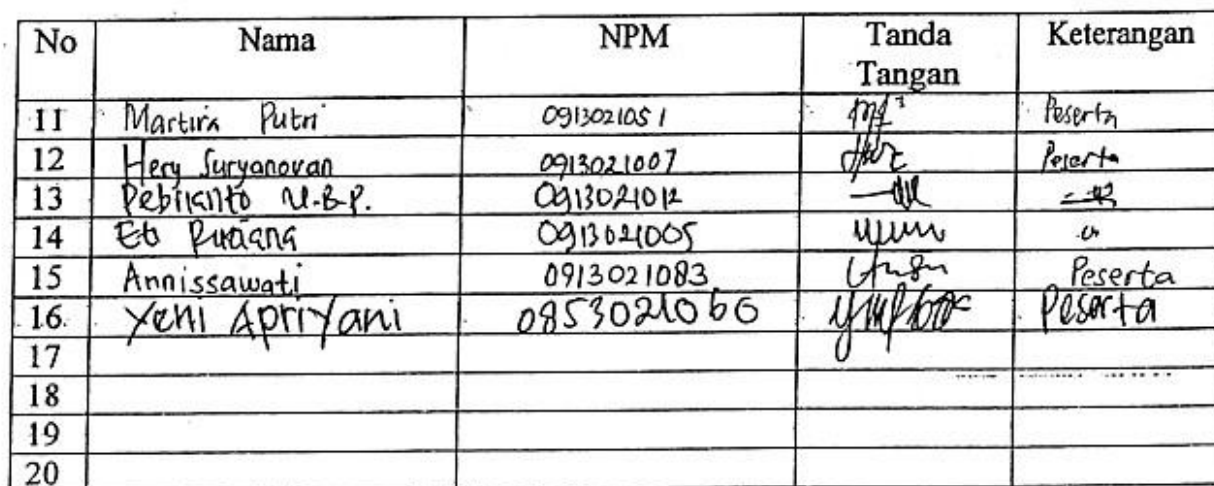 No Nama NPM Tanda Tangan Keterangan
11 Martira Putri 0913021051 Peserta
12 Hery Suryanovan 0913021007 Peserta
13 Pebrianto U.B.P. 0913021012
14 0913021005
15 Annissawati 0913021083 Peserta
16. Yeni Apriyani 0853021060 Peserta
17
18
19
20